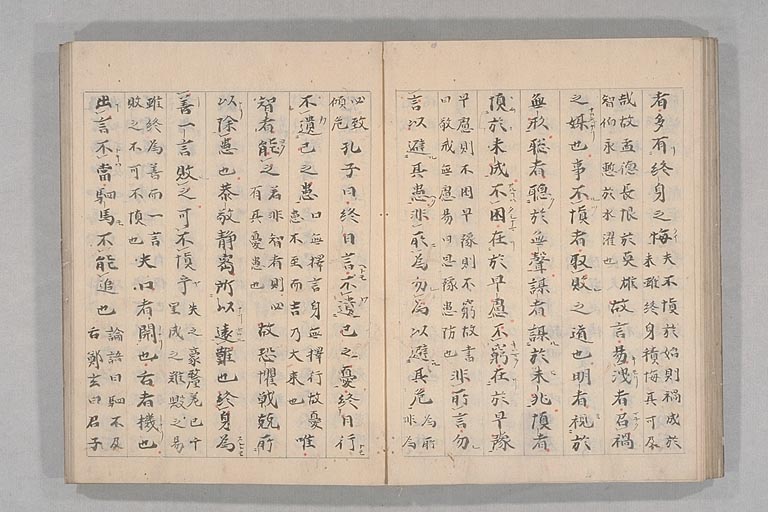 者多有終身之悔夫不慎於始則禍成於末雖終身積悔其可及
哉故孟德長恨於英雄智伯永慙於水灌也故言易洩者召禍
之媒也事不慎者取敗之道也明者視於
無形聡者聴於無聲謀者謀於未兆慎者
慎於未成不困在於早慮不窮在於早豫
早慮則不困早豫則不窮故書曰敬戒無慮易曰思豫患防也非所言勿
言以避其患非所為勿為以避其危為所非為
必致傾危孔子曰終日言不遺己之憂終日行
不遺己之患口無擇言身無擇行故憂患不至而吉乃大来也唯
智者能之若非智者則必有其憂患也故恐懼戦兢所
以除患也恭敬静密所以遠難也終身為
善一言敗之可不慎乎失之豪釐差已千里成之難毀之易
雖終為善而一言敗之不可不慎也夫口者開也舌者機也
出言不當駟馬不能追也論語曰駟不及舌鄭玄曰君子